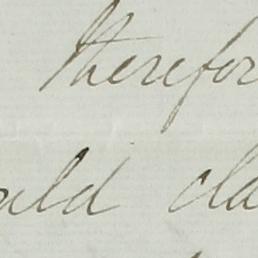 therefor
uld cla